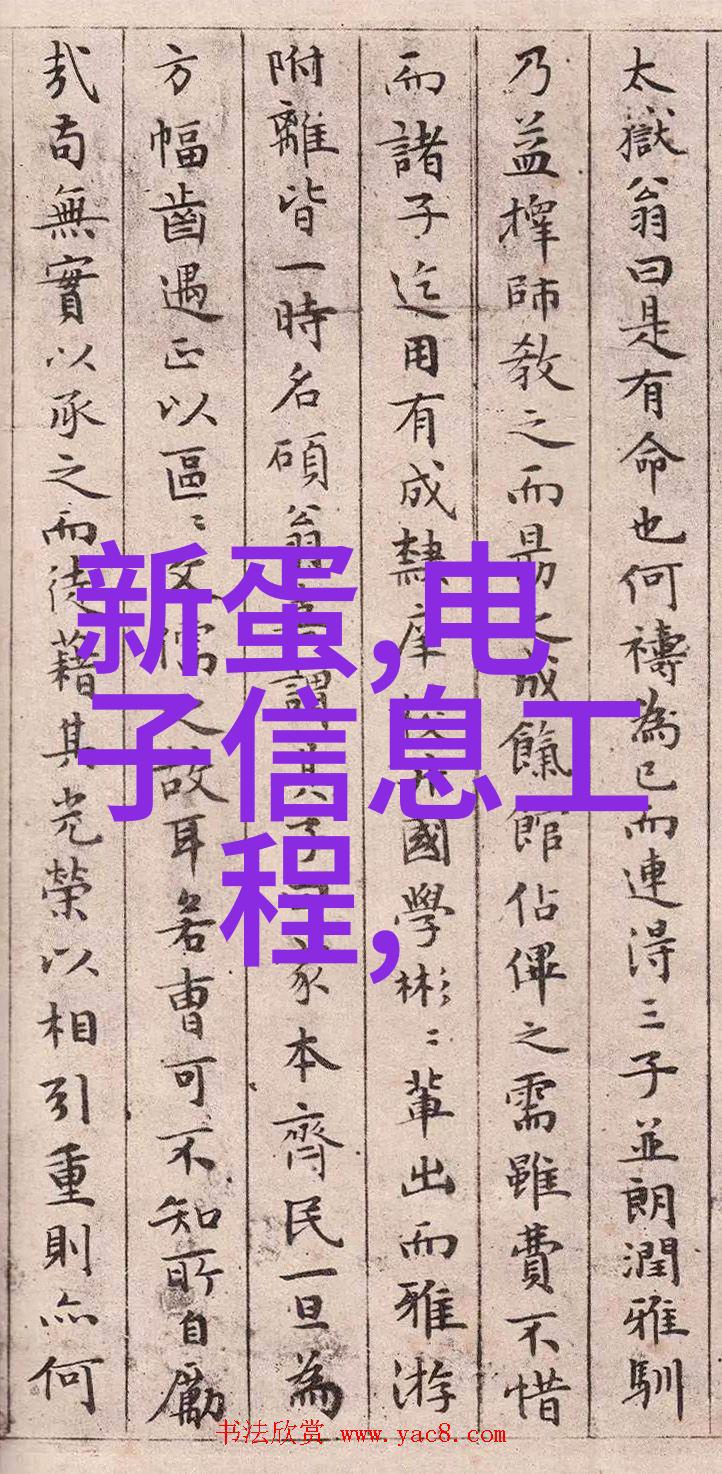 太嶽翁曰是有命也何禱為已而連得三子並朗潤雅馴
乃益擇師教之而勗之成餼館佔俾之需雖費不惜
而諸子迄用有成隸庠國學彬〻輩出而雅游
附離皆一時名碩翁謂其子家本齊民一旦為
方幅齒遇正以區〻文儒之故耳若曹可不知所自勵
哉苟無實以承之而徒藉其光榮以相引重則亦何
新蛋,电
子信息工
程,
书法欣赏 www.yac8.com